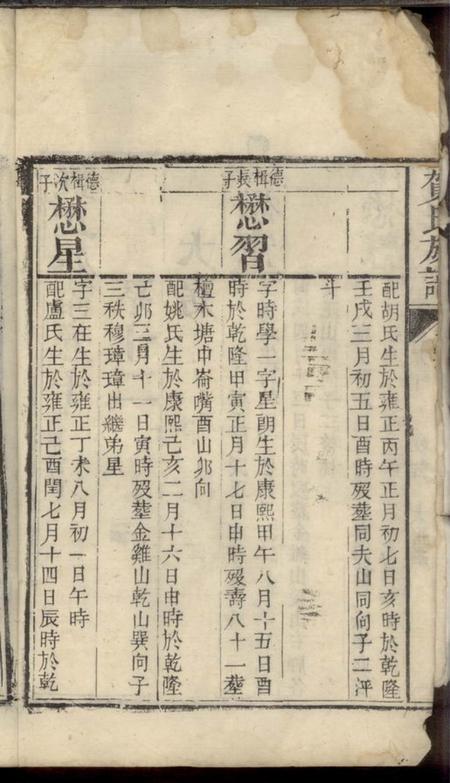 賀氏族譜
配胡氏生於雍正丙午正月初七日亥時於乾隆
壬戌三月初五日酉時歿塟同夫山同向子二泙
斗
德楫長子
懋習
字時學一字星朗生於康熙甲午八月十五日酉
時於乾隆甲寅正月十七日申時歿壽八十一塟
檀木塘中崙嘴酉山卯向
配姚氏生於康熙己亥二月十六日申時於乾隆
己卯三月十一日寅時歿塟金雞山乾山巽向子
三秩穆璋璋出繼弟星
德楫次子
懋星
字三在生於雍正丁未八月初一日午時
配盧氏生於雍正己酉閏七月十四日辰時於乾